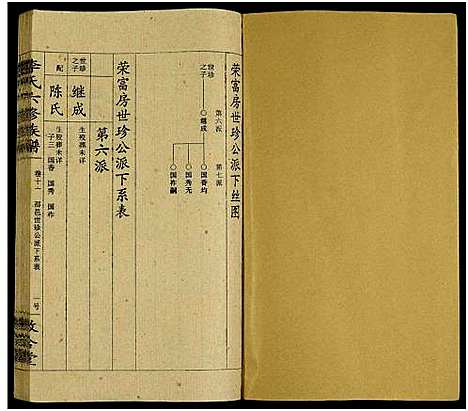 荣富房世珍公派下丝图
第六派
第七派
世珍之子
继成
国香均
国秀无
国祚嗣
荣富房世珍公派下系表
第六派
世珍之子
继成
生殁葬未详
配
陈氏
生殁葬未详
子三 国香 国秀 国祚
李氏六修族谱
卷十二
邵邑世珍公派下系表
一号
敦合堂